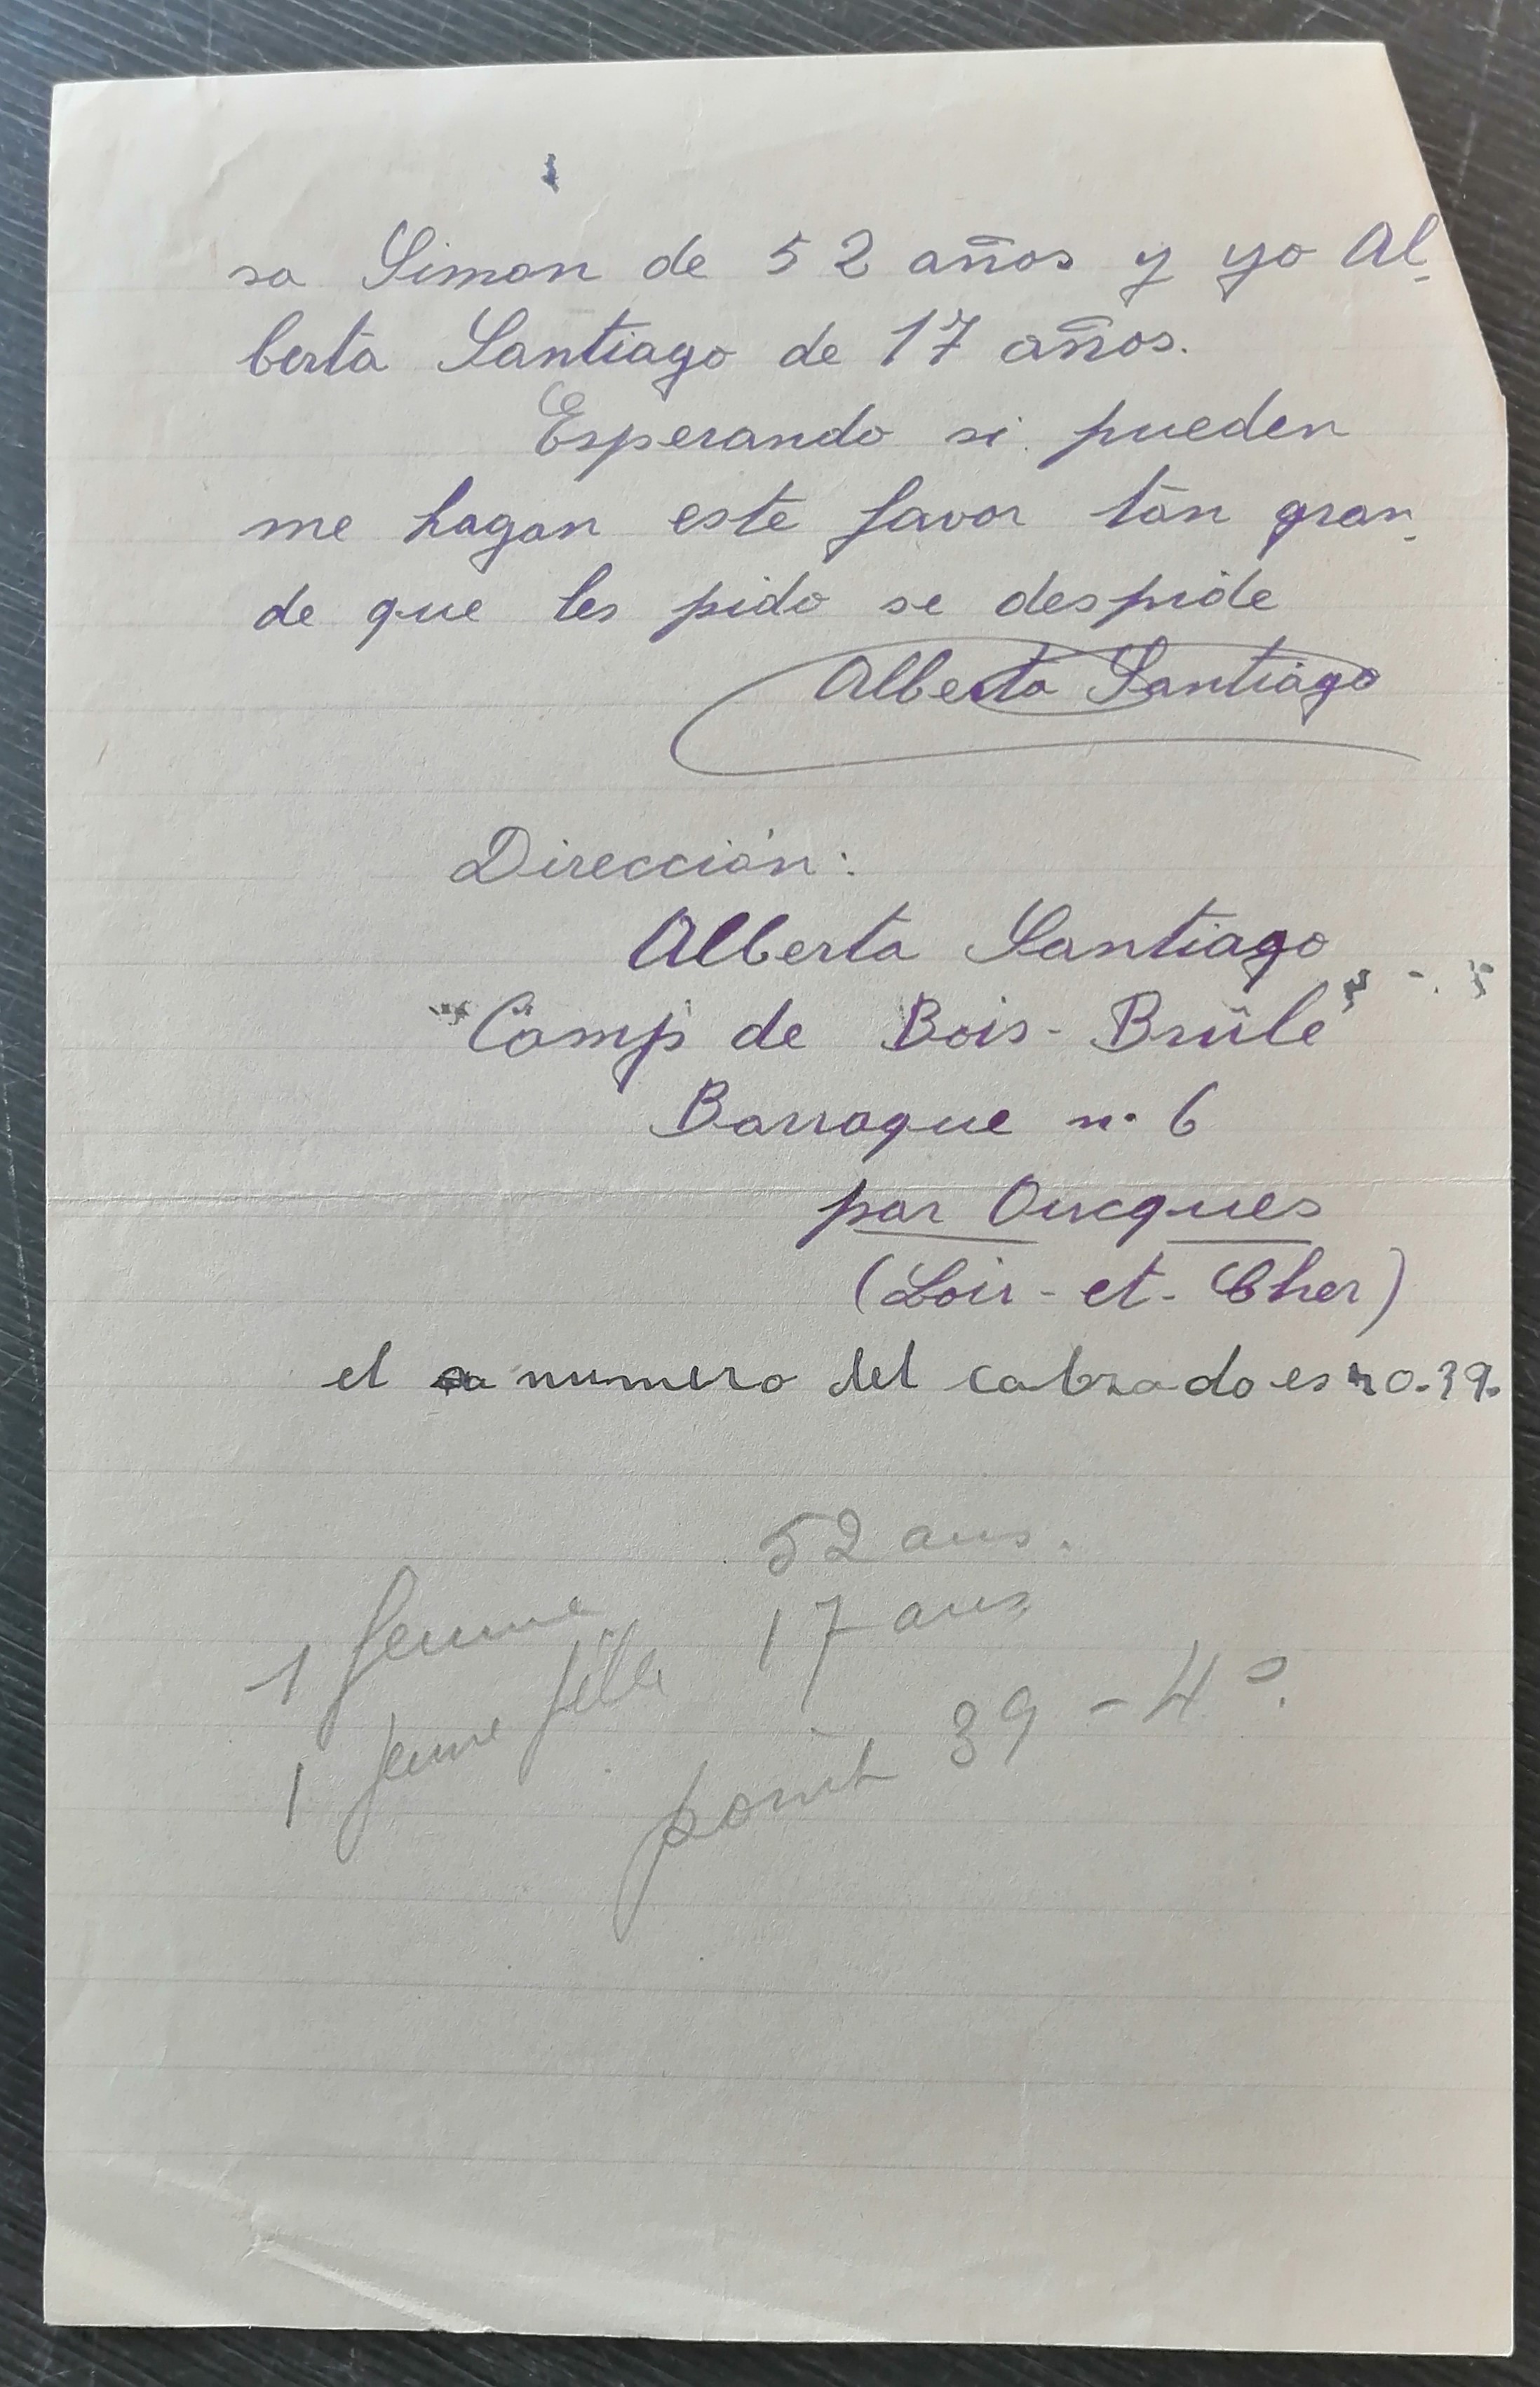 sa Simon de 52 años y yo Al-
berta Santiago de 17 años.
Esperando si pueden
me hagan este favor tan gran-
de que les pido se despide
Alberta Santiago
Dirección:
Alberta Santiago
"Camp de Bois-Brûlé"
Barraque n. 6
par Oucques
(Loir-et-Cher)
el numero del calzado es 39.
52 ans.
1 femme
17 ans
1 jeune fille
point 39-40.